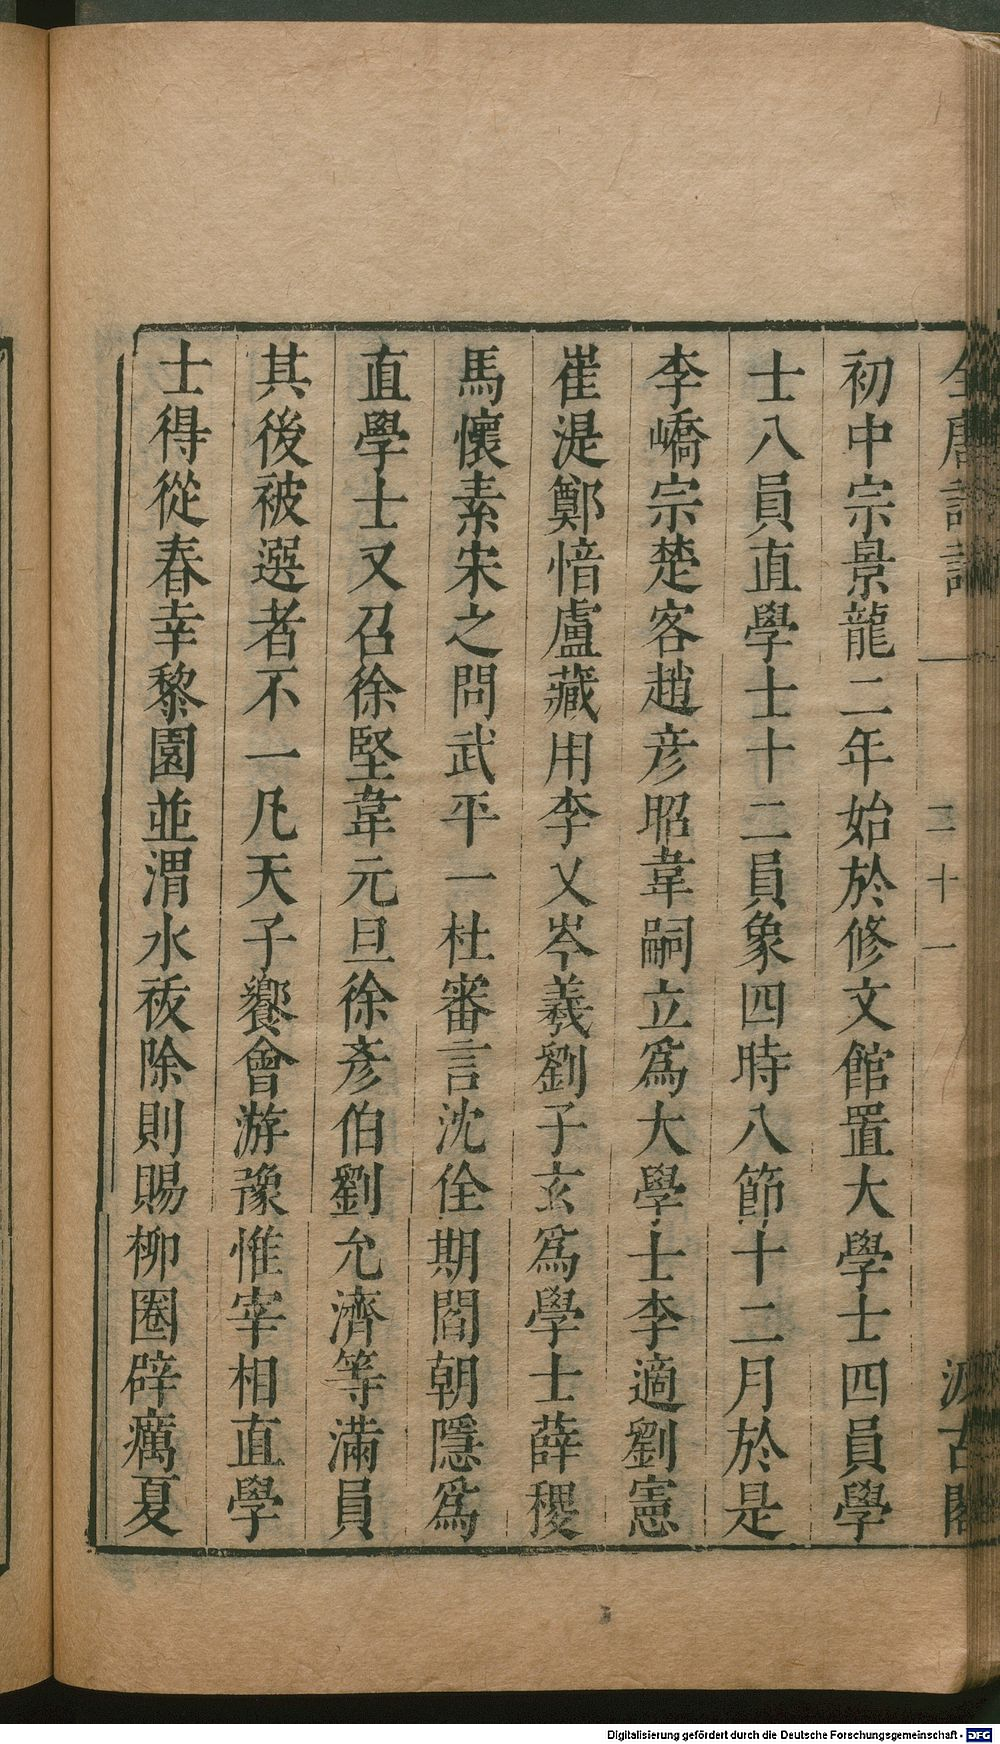 全唐詩話 一 二十一 汲古閣
初中宗景龍二年始於修文館置大學士四員學
士八員直學士十二員象四時八節十二月於是
李嶠宗楚客趙彦昭韋嗣立為大學士李適劉憲
崔湜鄭愔盧藏用李乂岑羲劉子玄為學士薛稷
馬懷素宋之問武平一杜審言沈佺期閻朝隱為
直學士又召徐堅韋元旦徐彥伯劉允濟等滿員
其後被選者不一凡天子饗會游豫惟宰相直學
士得從春幸黎園並渭水祓除則賜柳圈辟癘夏
Digitalisierung gefördert durch die Deutsche Forschungsgemeinschaft - DFG